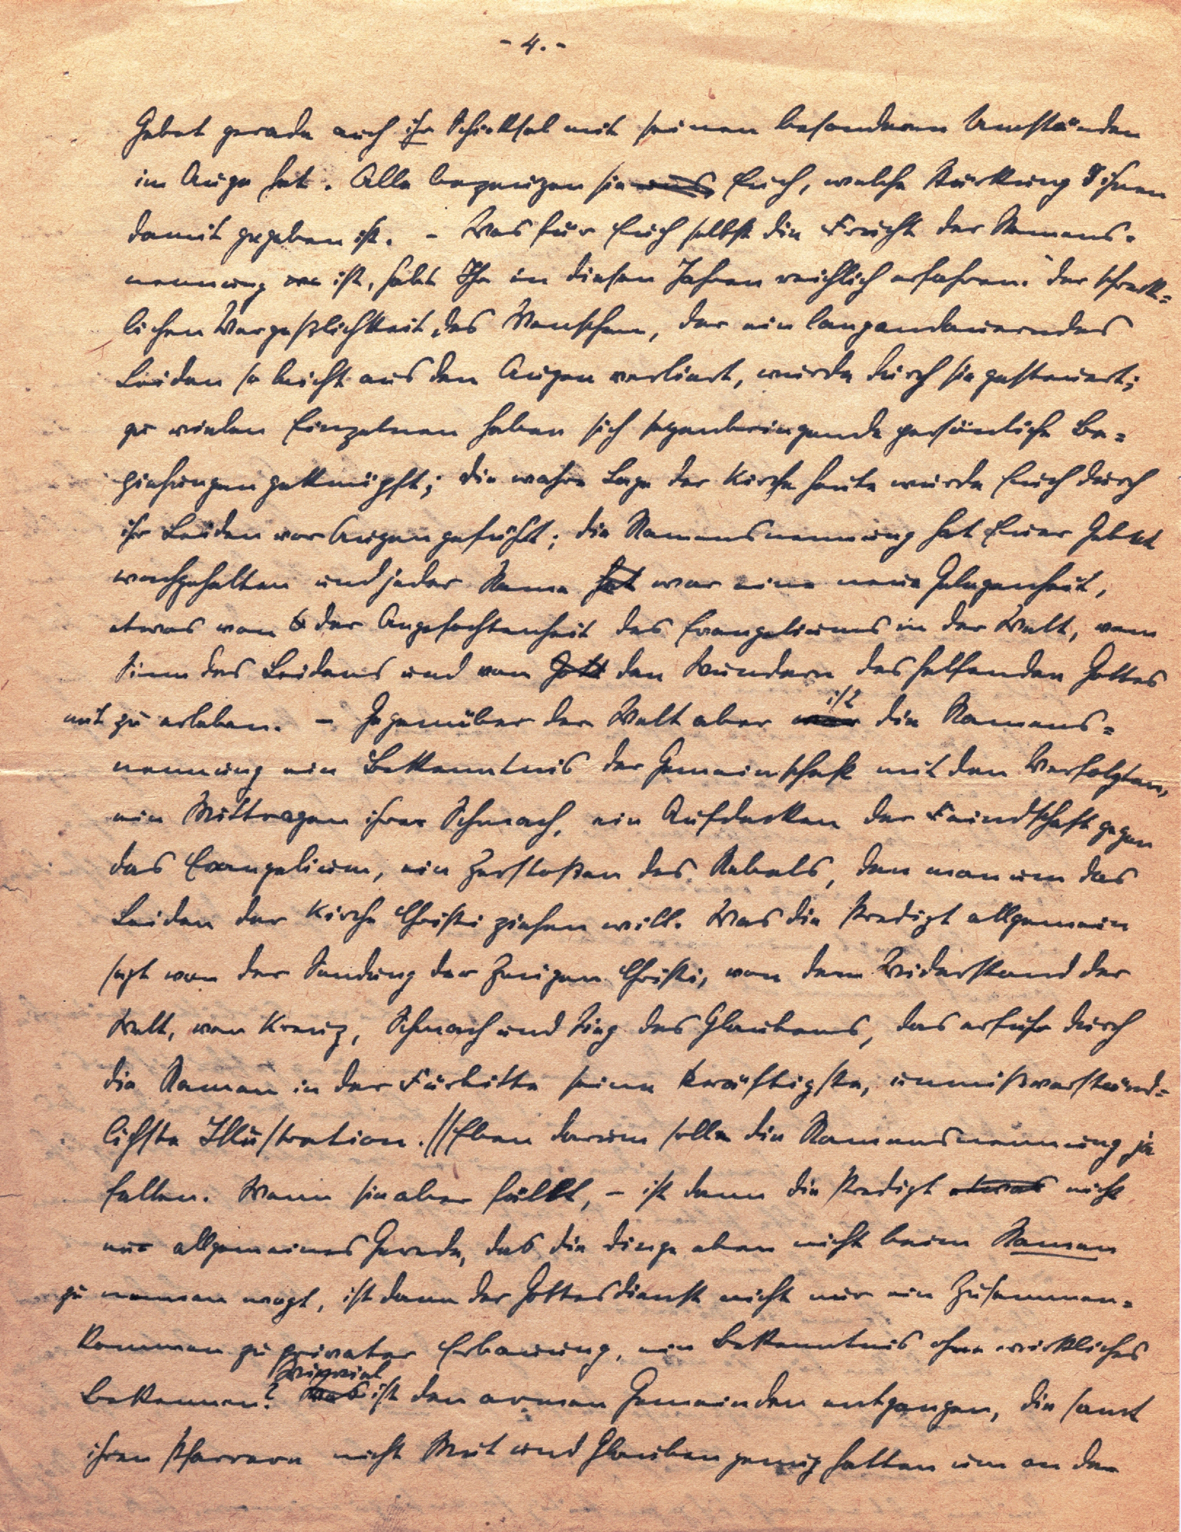 - 4. -
Gebet gerade auch ihr Schicksal mit seinen besonderen Umständen
im Auge hat. Alle bezeugen sie uns Euch, welche Stärkung Ihnen
damit gegeben ist. - Was für Euch selbst die Frucht der Namens-
nennung ist, habt Ihr in diesen Jahren reichlich erfahren: der schreck-
lichen Vergeßlichkeit des Menschen, der ein langandauerndes
Leiden so leicht aus den Augen verliert, wurde durch sie gesteuert;
zu vielen Einzelnen haben sich segenbringende persönliche Be-
ziehungen geknüpft; die wahre Lage der Kirche heute wurde Euch durch
ihr Leiden vor Augen geführt; die Namensnennung hat Euer Gebet
wachgehalten und jeder Name hat war eine neue Gelegenheit,
etwas von der Angefochtenheit des Evangeliums in der Welt, vom
Sinn des Leidens und von Gott den Wundern des helfenden Gottes
mit zu erleben. - Gegenüber der Welt aber war ist die Namens-
nennung ein Bekenntnis der Gemeinschaft mit den Verfolgten,
ein Mittragen ihrer Schmach, ein Aufdecken der Feindschaft gegen
das Evangelium, ein Zerstoßen des Nebels, den man um das
Leiden der Kirche Christi ziehen will. Was die Predigt allgemein
sagt von der Sendung der Zeugen Christi, von dem Widerstand der
Welt, von Kreuz, Schmach und Sieg des Glaubens, das erfuhr durch
die Namen in der Fürbitte seine kräftigste, unmißverständ-
lichste Illustration. // Eben darum solle die Namensnennung ja
fallen. Wenn sie aber fällt, - ist dann die Predigt etwas nicht
nur allgemeines Gerede, das die Dinge eben nicht beim Namen
zu nennen wagt, ist dann der Gottesdienst nicht nur ein Zusammen-
kommen zu privater Erbauung, ein Bekenntnis ohne wirkliches
Bekennen? Wieviel Was ist den armen Gemeinden entgangen, die samt
ihren Pfarrern nicht Mut und Glauben genug hatten um an der